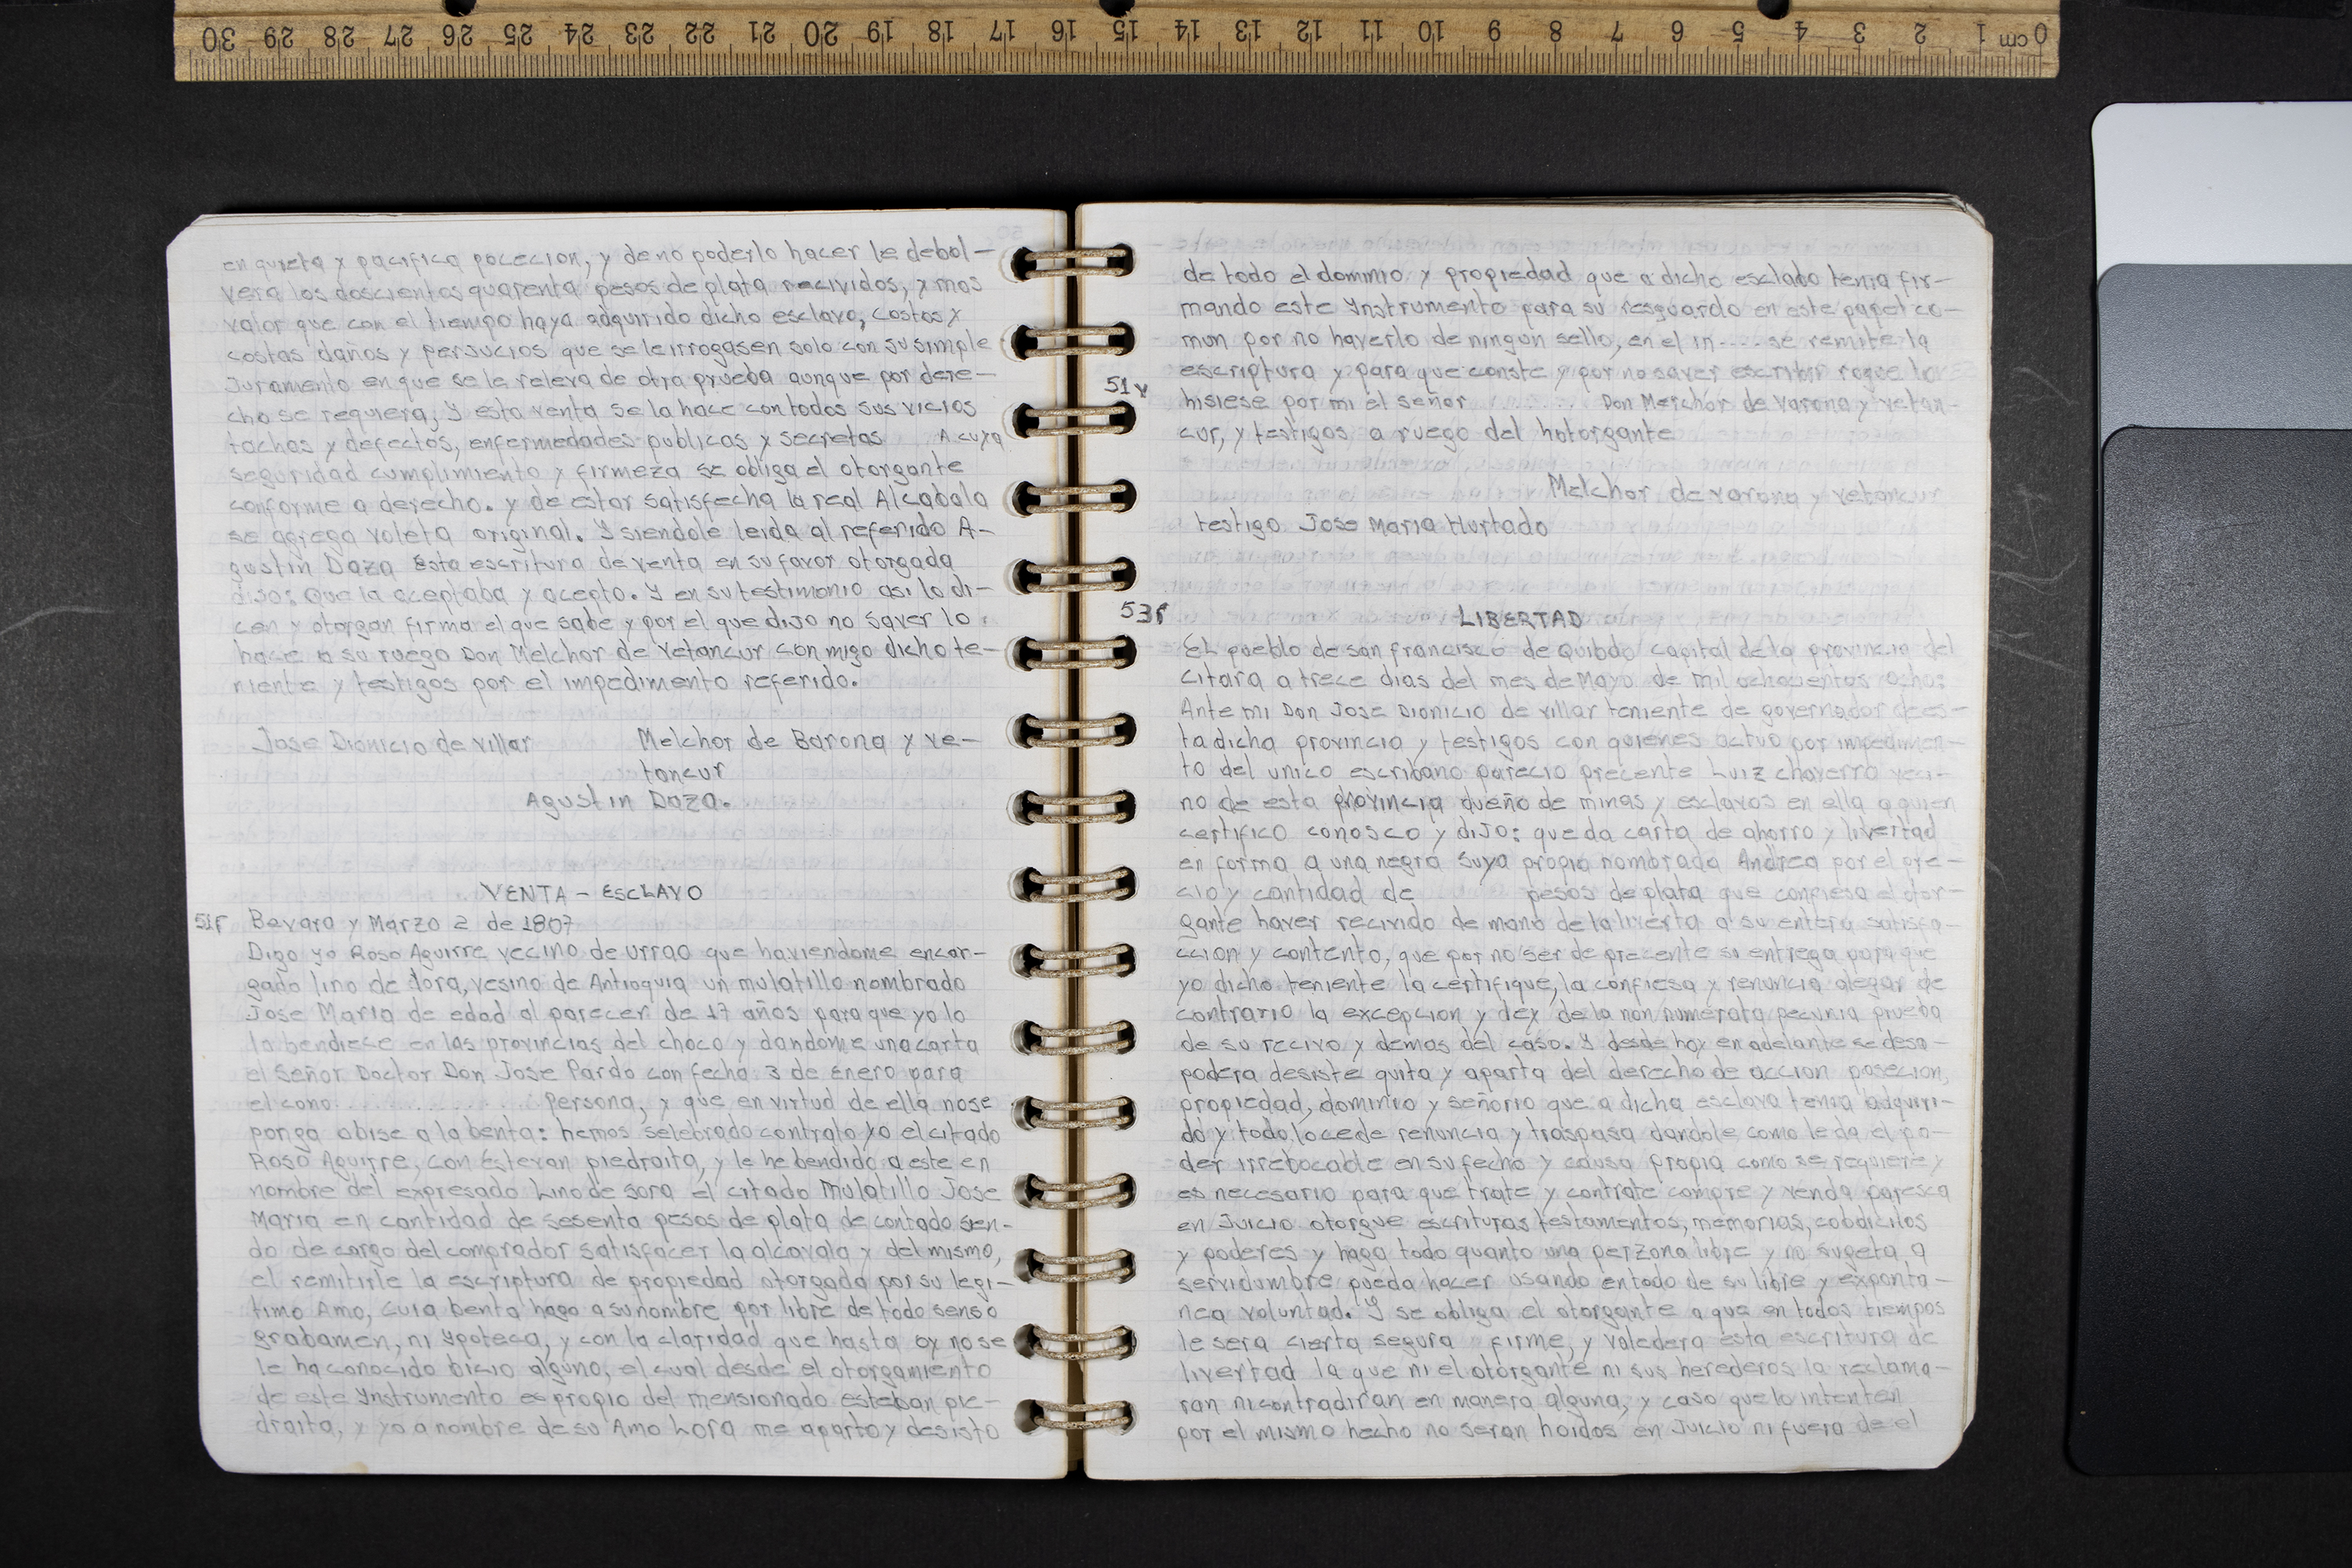 0 cm 1 2 3 4 5 6 7 8 9 10 11 12 13 14 15 16 17 18 19 20 21 22 23 24 25 26 27 28 29 30
en quieta y pacifica pocecion, y de no poderlo hacer le debol-
vera los doscientos quarenta pesos de plata recividos, y mas
valor que con el tiempo haya adquirido dicho esclavo, costos y
costas daños y persucios que se le irrogasen solo con su simple
Juramento en que se le releva de otra prueba aunque por dere-
cho se requiera, Y esta venta se la hace con todos sus vicios
tachas y defectos, enfermedades publicas y secretas A cuya
seguridad cumplimiento y firmeza se obliga el otorgante
conforme a derecho. y de estar satisfecha la real Alcabala
se agrega voleta original. Y siendole leida al referido A-
gustin Daza esta escritura de venta en su favor otorgada
dijo: Que la aceptaba y acepto. Y en su testimonio asi lo di-
cen y otorgan firma el que sabe y por el que dijo no saver lo
hace a su ruego Don Melchor de Vetancur conmigo dicho te-
niente y testigos por el impedimento referido.
Jose Dionicio de Villar Melchor de Barona y ve-
tancur
Agustin Daza.
VENTA - ESCLAVO
51r Bevara y Marzo 2 de 1807
Digo yo Roso Aguirre vecino de Urrao que haviendome encar-
gado lino de lora, vesino de Antioquia un mulatillo nombrado
Jose Maria de edad al parecer de 17 años para que yo lo
lo bendiece en las provincias del choco y dandome una carta
el Señor Doctor Don Jose Pardo con fecha 3 de Enero para
el cono.............. Persona, y que en virtud de ella nose
ponga obise a la benta: hemos selebrado contrato yo el citado
Roso Aguirre, con Estevan piedraita, y le he bendido a este en
nombre del expresado Lino de Sora el citado Mulatillo Jose
Maria en cantidad de sesenta pesos de plata de contado sien-
do de cargo del comprador satisfacer la alcavala y del mismo,
el remitirle la escriptura de propiedad otorgada por su legi-
timo Amo, cuia benta hago a su nombre por libre de todo senso
grabamen, ni Ypoteca, y con la claridad que hasta oy nose
le ha conocido bicio alguno, el cual desde el otorgamiento
de este Ynstrumento es propio del mensionado esteban pie-
draita, y yo a nombre de su Amo Lora me aparto y desisto
de todo el dominio y propiedad que a dicho esclabo tenia fir-
mando este Ynstrumento para su resguardo en este papel co-
mun por no haverlo de ningun sello, en el in.... se remite la
escriptura y para que conste y por no saver escribir rogue lo
51v hisiese por mi el señor ....... Don Melchor de Varona y Vetan-
cur, y testigos a ruego del hotorgante
Melchor de varona y vetancur
testigo Jose Maria Hurtado
53r LIBERTAD
El pueblo de san francisco de Quibdo capital de la provincia del
Citara a trece dias del mes de Mayo de mil ochocientos ocho:
Ante mi Don Jose Dionicio de villar teniente de governador de es-
ta dicha provincia y testigos con quienes actuo por impedimen-
to del unico escribano parecio precente Luiz chaverro veci-
no de esta provincia dueño de minas y esclavos en ella a quien
certifico conosco y dijo: que da carta de ahorro y livertad
en forma a una negra suya propia nombrada Andrea por el pre-
cio y cantidad de pesos de plata que confiesa el otor-
gante haver recivido de mano de la liverta a su entera satisfa-
ccion y contento, que por no ser de precente su entrega para que
yo dicho teniente la certifique, la confiesa y renuncia alegar de
contrario la excepcion y dex de la non numerata pecunia prueba
de su recivo y demas del caso. Y desde hoy en adelante se desa-
podera desiste quita y aparta del derecho de accion posecion,
propiedad, dominio y señorio que a dicha esclava tenia adquiri-
do y todo lo cede renuncia y traspasa dandole como le da el po-
der irrebocable en su fecho y causa propia como se requiere y
es necesario para que trate y contrate compre y venda paresca
en Juicio otorgue escrituras testamentos, memorias, cobdicilos
y poderes y haga todo quanto una perzona libre y no sugeta a
servidumbre pueda hacer usando en todo de su libre y exponta-
nea voluntad. Y se obliga el otorgante a que en todos tiempos
le sera cierta segura firme, y valedera esta escritura de
livertad la que ni el otorgante ni sus herederos la reclama-
ran ni contradiran en manera alguna, y caso que lo intenten
por el mismo hecho no seran hoidos en Juicio ni fuera de el